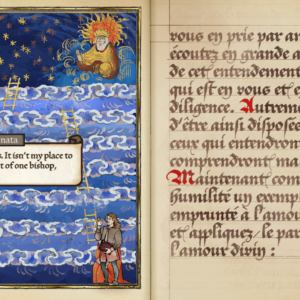 nata
s. It isn't my place to
t of one bishop,
vous en prie par am
écoutez en grande a
de cet entendement
qui est en vous et e
diligence. Autreme
d'être ainsi disposée
ceux qui entendront
comprendront ma
Maintenant com
humilité un exemp
emprunté à l'amou
et appliquez le par
l'amour divin :